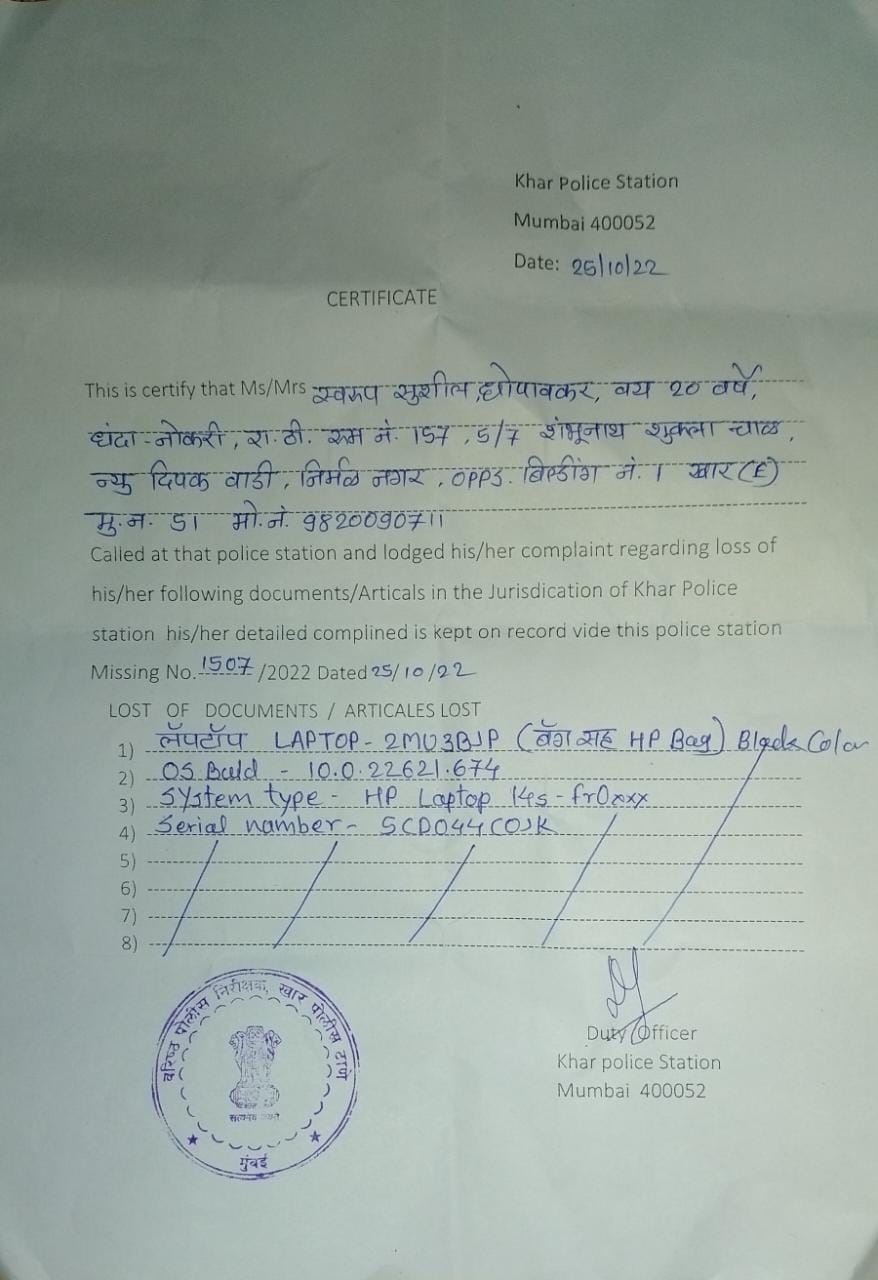 Khar Police Station
Mumbai 400052
Date: 25/10/22
CERTIFICATE
This is certify that Ms/Mrs स्वरुप सुशील धोपावकर, वय 20 वर्षे,
धंदा - नोकरी, रा. ठी. रुम नं. 157, 5/7 शंभूनाथ शुक्ला चाळ,
न्यु दिपक वाडी, निर्मळ नगर, OPPS. बिल्डींग नं. 1 खार (E)
मु.न. 51 मो.नं. 9820090711
Called at that police station and lodged his/her complaint regarding loss of
his/her following documents/Articals in the Jurisdication of Khar Police
station his/her detailed complined is kept on record vide this police station
Missing No. 1507 /2022 Dated 25/10/22
LOST OF DOCUMENTS / ARTICALES LOST
1) लॅपटॉप LAPTOP - 2MU3BJP (बॅग सह HP Bag) Black Color
2) OS Build - 10.0.22621.674
3) System type - HP Laptop 14s - fr0xxx
4) Serial number - 5CD044C0JK
5)
6)
7)
8)
Duty Officer
Khar police Station
Mumbai 400052
वरिष्ठ पोलीस निरीक्षक, खार पोलीस ठाणे
मुंबई